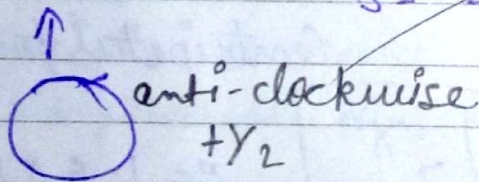 anti-clockwise
+Y₂